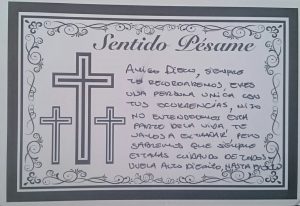 Sentido Pésame
Amigo Diego, siempre
te recordaremos, eres
una persona unica con
tus ocurrencias, hijo
no entendemos esta
parte de la vida te
vamos a extrañar pero
sabemos que siempre
estaras cuidando de todos
vuela alto Dieguito, hasta